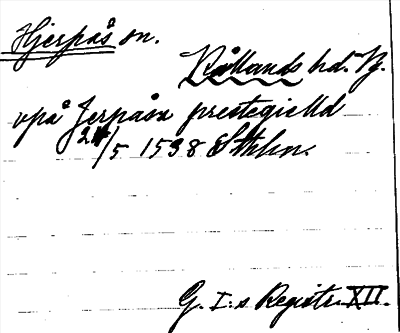 Hjerpås sn.
Kållands hd. Vg.
vpå Jerpåsa prestegielld
24/5 1538 Sthlm.
G. I:s Registr. XII.